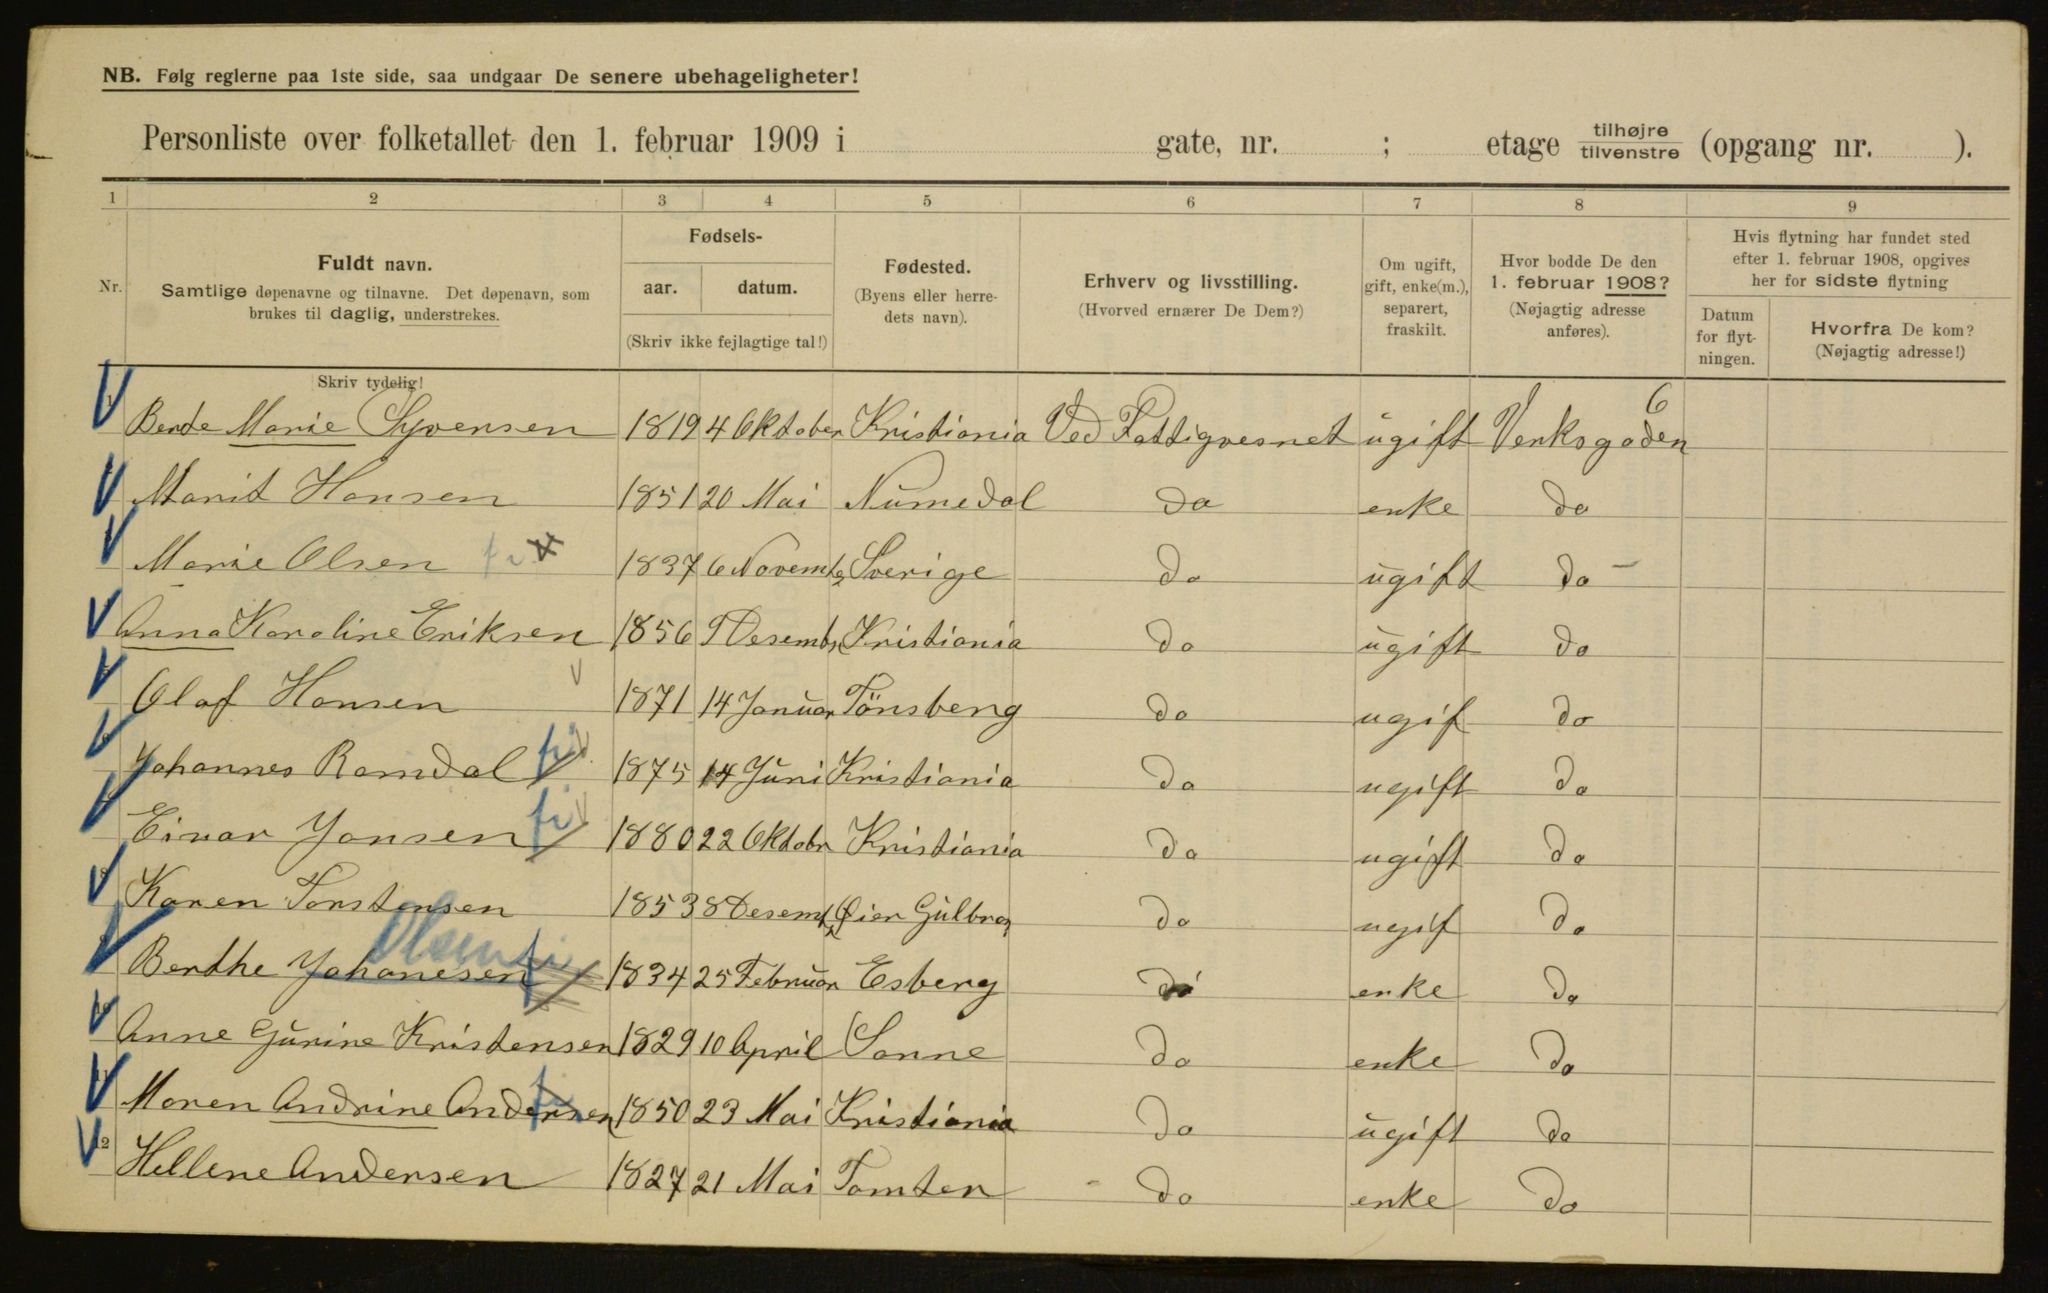 NB. Følg reglerne paa 1ste side, saa undgaar De senere ubehageligheter!
Personliste over folketallet den 1. februar 1909 i gate, nr. ; etage tilhøjre/tilvenstre (opgang nr. ).
1 2 3 4 5 6 7 8 9
Nr.
Fuldt navn.
Samtlige døpenavne og tilnavne. Det døpenavn, som
brukes til daglig, understrekes.
Skriv tydelig!
Fødsels-
aar. datum.
(Skriv ikke fejlagtige tal!)
Fødested.
(Byens eller herre-
dets navn).
Erhverv og livsstilling.
(Hvorved ernærer De Dem?)
Om ugift,
gift, enke(m.),
separert,
fraskilt.
Hvor bodde De den
1. februar 1908?
(Nøjagtig adresse
anføres).
Hvis flytning har fundet sted
efter 1. februar 1908, opgives
her for sidste flytning
Datum
for flyt-
ningen.
Hvorfra De kom?
(Nøjagtig adresse!)
Bende Marie Syvensen 1819 4 Oktober Kristiania Ved Fattigvesnet ugift Verksgaden 6
Marit Hansen 1851 20 Mai Numedal do enke do
Marie Olsen 1837 6 Novemb Sverige do ugift do
Anna Karoline Eriksen 1856 9 Desemb Kristiania do ugift do
Olaf Hansen 1871 14 Januar Tönsberg do ugif do
Johannes Ramdal fi 1875 14 Juni Kristiania do ugift do
Einar Jansen fi 1880 22 Oktobr Kristiania do ugift do
Karen Torstensen 1853 8 Desemb Øier Gulbra do ugif do
Olsen fi
Berthe Johanesen 1834 25 Februar Esberg do enke do
Anne Gurine Kristensen 1829 10 April Sanne do enke do
11 Maren Andrine Andersen 1850 23 Mai Kristiania do ugift do
12 Hellene Andersen 1827 21 Mai Tomter do enke do